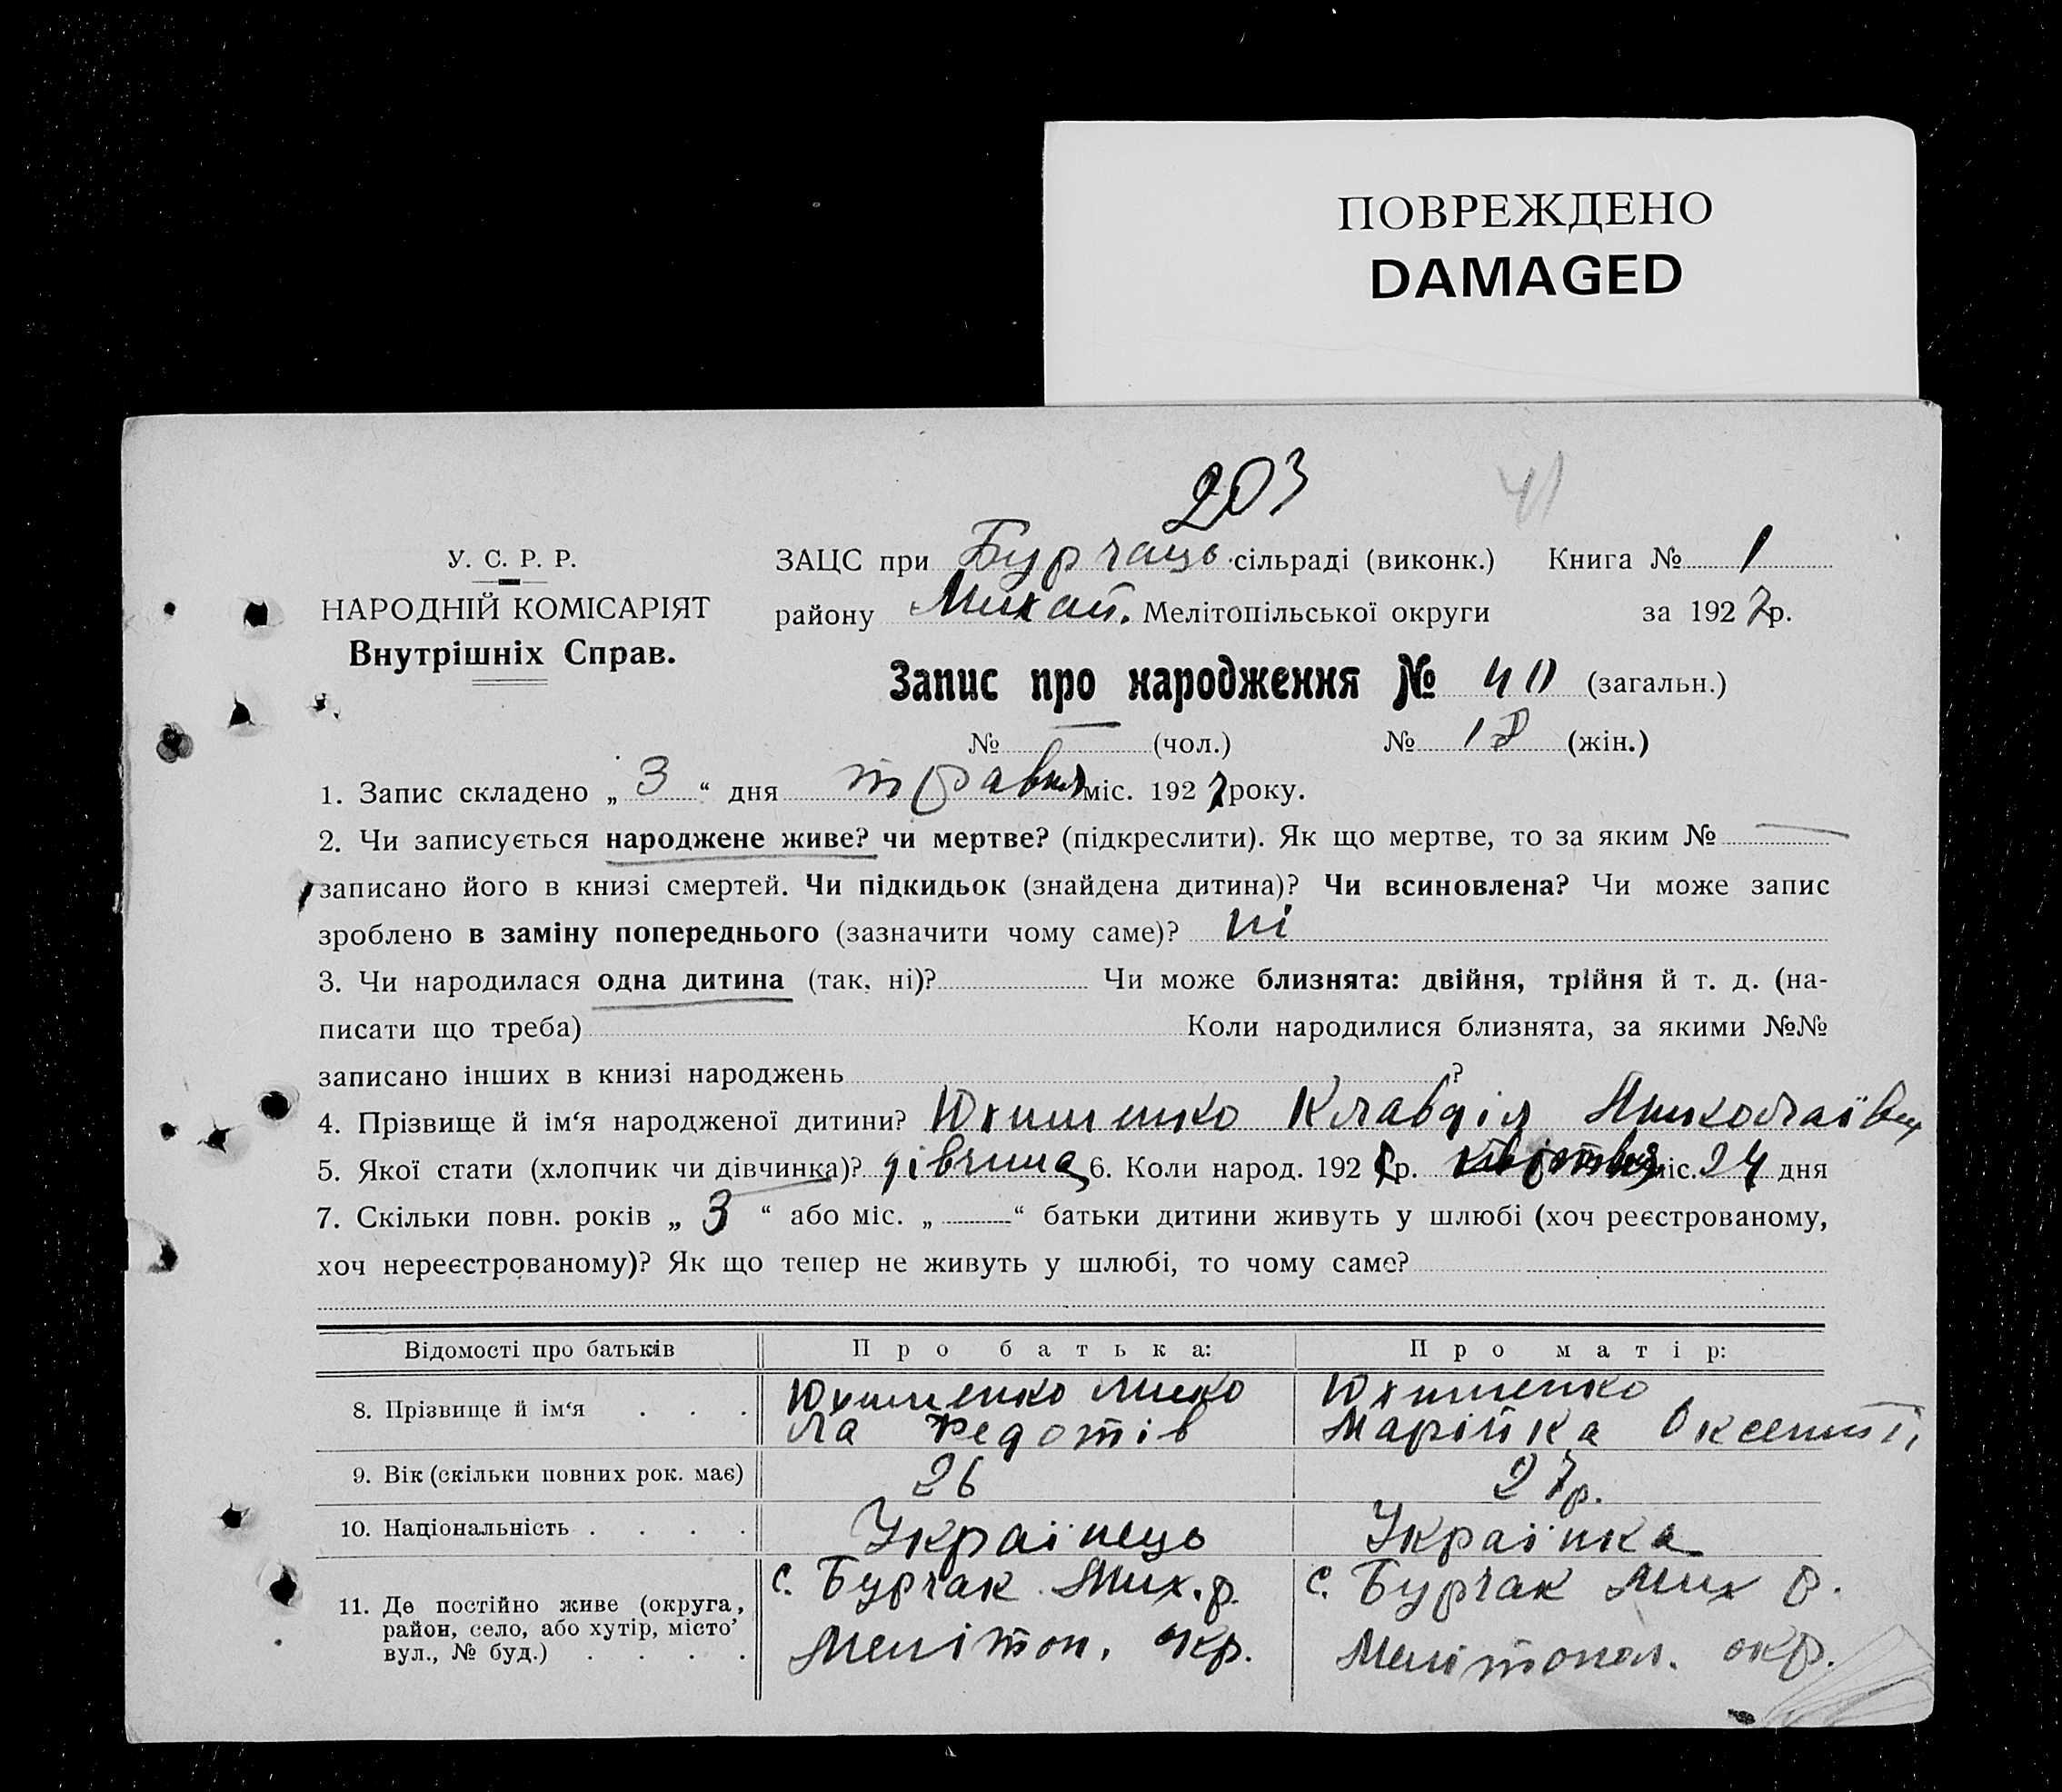 ПОВРЕЖДЕНО
DAMAGED
203
41
У. С. Р. Р.
НАРОДНІЙ КОМІСАРІЯТ
Внутрішніх Справ.
ЗАЦС при Бурчаць сільраді (виконк.) Книга № 1
району Михай. Мелітопільської округи за 1927 р.
Запис про народження № 40 (загальн.)
№ — (чол.) № 18 (жін.)
1. Запис складено „ 3 “ дня травня міс. 1927 року.
2. Чи записується народжене живе? чи мертве? (підкреслити). Як що мертве, то за яким № —
записано його в книзі смертей. Чи підкидьок (знайдена дитина)? Чи всиновлена? Чи може запис
зроблено в заміну попереднього (зазначити чому саме)? ні
3. Чи народилася одна дитина (так, ні)? Чи може близнята: двійня, трійня й т. д. (на-
писати що треба) Коли народилися близнята, за якими №№
записано інших в книзі народжень ?
4. Прізвище й ім‘я народженої дитини? Юхименко Клавдія Миколаївн
5. Якої стати (хлопчик чи дівчинка)? дівчина 6. Коли народ. 192 р. квітня міс. 24 дня
7. Скільки повн. років „ 3 “ або міс. „ — “ батьки дитини живуть у шлюбі (хоч реєстрованому,
хоч нереєстрованому)? Як що тепер не живуть у шлюбі, то чому саме?
Відомості про батьків Про батька: Про матір:
8. Прізвище й ім‘я . . . Юхименко Мико Юхименко
ла Федотів Марійка Оксенті
9. Вік (скільки повних рок. має) 26 27 р.
10. Національність . . . . Українець Українка
11. Де постійно живе (округа, с. Бурчак Мих. р. с. Бурчак Мих р.
район, село, або хутір, місто’
вул., № буд.) . . . . Мелітоп. окр. Мелітопол. окр.